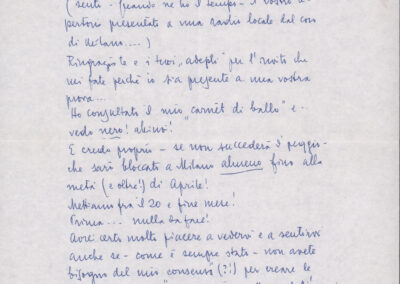 (sento - quando ne ho il tempo - il vostro
pertorio presentato a una radio locale dal
di Milano....)
Ringrazio te e i tuoi "adepti" per l'invito che
mi fate perchè io sia presente a una vostra
prova...
Ho consultato il mio "carnet di ballo" e..
vedo nero! ahimè!
E credo proprio - se non succederà di peggio -
che sarò bloccato a Milano almeno fino alla
metà (e oltre!) di Aprile!
Mettiamo fra il 20 e fine mese!
Prima... nulla da fare!
Avrei certo molto piacere a vedervi e a sentirvi
anche se - come è sempre stato - non avete
bisogno del mio consenso (?!) per creare le